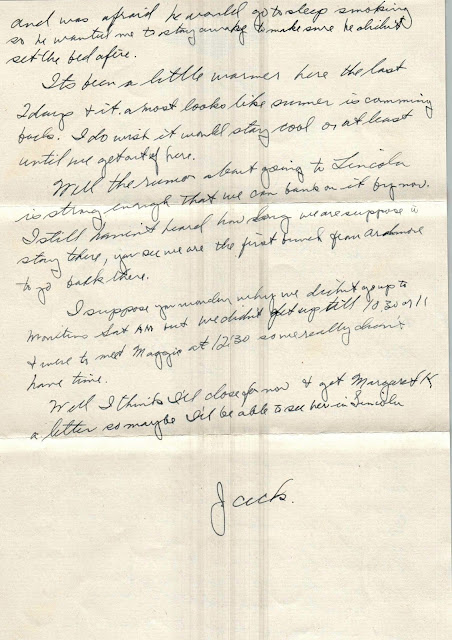 and was afraid he would go to sleep smoking
so he wanted me to stay awake to make sure he didn't
set the bed afire.
Its been a little warmer here the last
2 days & it almost looks like summer is comming
back. I do wish it would stay cool or at least
until we get out of here.
Well the rumor about going to Lincoln
is strong enough that we can bank on it by now.
I still haven't heard how long we are suppose to
stay there, you see we are the first bunch from Ardmore
to go back there.
I suppose you wonder why we didn't go up to
Monitins Sat AM but we didn't get up till 10:30 or 11
& were to meet Maggie at 12:30 so we really didn't
have time.
Well I think I'll close for now & get Margaret K
a letter so maybe I'll be able to see her in Lincoln
Jack.